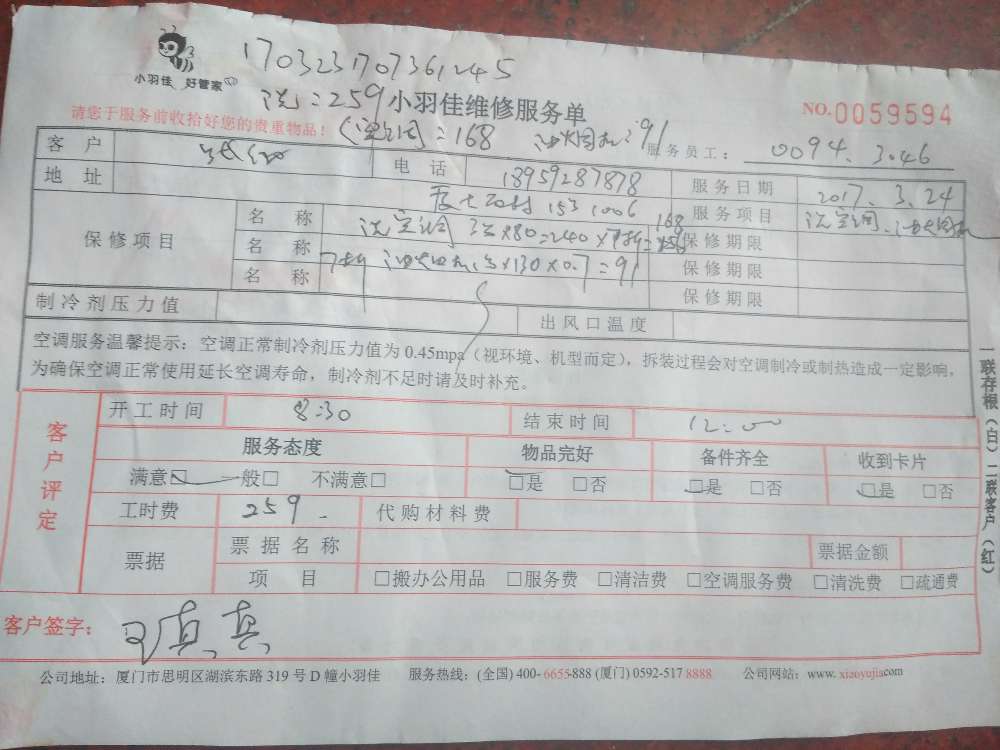 1703231707361245
小羽佳 好管家
洗:259 小羽佳维修服务单
NO.0059594
请您于服务前收拾好您的贵重物品!
(空调=168 油烟机:91
服务员工: 0094. 3.46
客户 电话 13959287878 服务日期 2017.3.24
地址 153 1006 服务项目 洗空调、油烟机
保修项目 名称 洗空调 3×80=240×7折=168 保修期限
名称 7折 油烟机:1×130×0.7=91 保修期限
名称 保修期限
制冷剂压力值 出风口温度
空调服务温馨提示:空调正常制冷剂压力值为0.45mpa(视环境、机型而定),拆装过程会对空调制冷或制热造成一定影响,
为确保空调正常使用延长空调寿命,制冷剂不足时请及时补充。
客户评定
开工时间 8:30 结束时间 12:00
服务态度 物品完好 备件齐全 收到卡片
满意☑ 一般□ 不满意□ □是 □否 □是 □否 □是 □否
工时费 259 代购材料费
票据 票据名称 票据金额
项目 □搬办公用品 □服务费 □清洁费 □空调服务费 □清洗费 □疏通费
客户签字:
公司地址:厦门市思明区湖滨东路319号D幢小羽佳 服务热线:(全国)400-6655-888(厦门)0592-517 8888 公司网站:www.xiaoyujia.com
一联存根(白)二联客户(红)